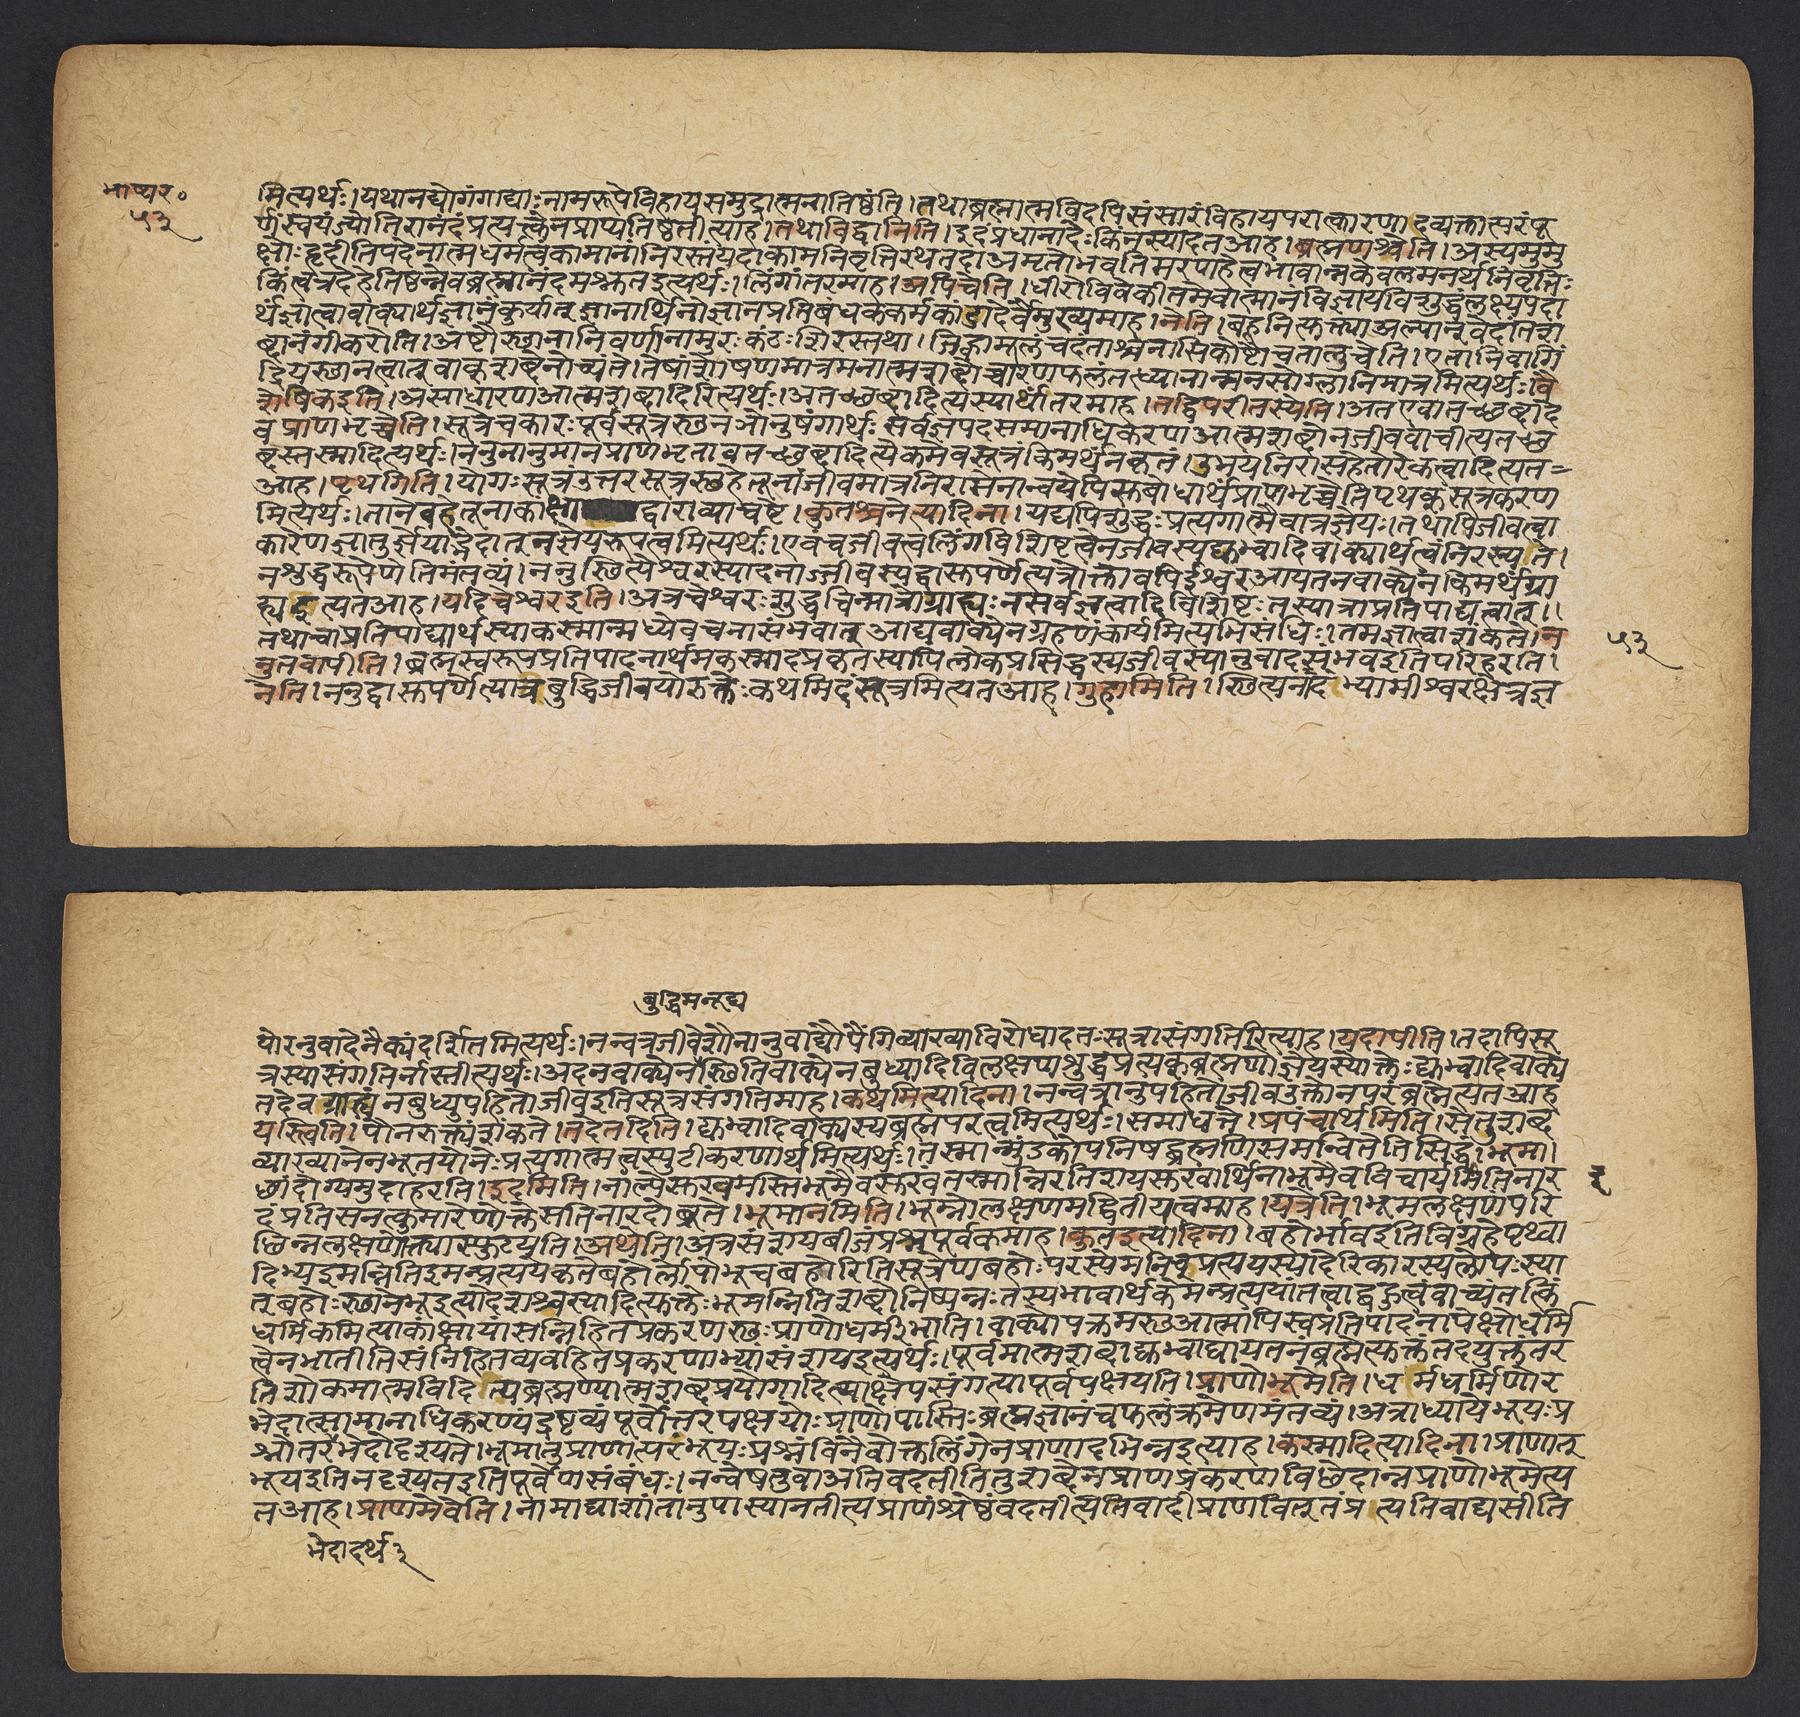 भाष्यर०
५३
मित्यर्थः।यथानद्योगंगाद्याःनामरूपेविहायसमुद्रात्मनातिष्ठंति।तथाब्रह्मात्मविदपिसंसारंविहायपरात्कारणादव्यक्तात्परंपू
र्णंस्वयंज्योतिरानंदंप्रत्यक्त्वेनप्राप्यतिष्ठतीत्याह।तथाविद्वानिति।इदंप्रधानादेःकिंनस्यादतआह।ब्रह्मणश्चेति।अस्यमुमु
क्षोःहृदीतिपदेनात्मधर्मत्वंकामानांनिरस्तंयदाकामनिवृत्तिरथतदाअमृतोभवतिमरणहेत्वभावान्नकेवलमनर्थनिवृत्तिः
किंत्वत्रदेहेतिष्ठन्नेवब्रह्मानंदमश्नुतइत्यर्थः।लिंगांतरमाह।अपिचेति।धीरोविवेकीतमेवात्मानंविज्ञायविशुद्धंलक्ष्यपदा
र्थंज्ञात्वावाक्यार्थज्ञानंकुर्यात्ज्ञानार्थिनोज्ञानप्रतिबंधककर्मकांडादेर्वैमुख्यमाह।नेति।बहूनित्युक्त्याअल्पान्वेदांतश
ब्दानंगीकरोति।अष्टौस्थानानिवर्णानामुरःकंठःशिरस्तथा।जिह्वामूलंचदंताश्चनासिकोष्ठौचतालुचेति।एतानिवागिं
द्रियस्थानत्वात्वाक्शब्देनोच्यंते।तेषांशोषणमात्रमनात्मशब्दोच्चारणफलंतद्ध्यानान्मनसोग्लानिमात्रमित्यर्थः।वै
शेषिकइति।असाधारणआत्मशब्दादिरित्यर्थः।अतच्छब्दादित्यस्यार्थांतरमाह।तद्विपरीतस्येति।अतएवातच्छब्दादे
वप्राणभृच्चेति।सूत्रेचकारःपूर्वसूत्रस्थनञोनुषंगार्थःसर्वज्ञपदसमानाधिकरणआत्मशब्दोनजीववाचीत्यतच्छ
ब्दस्तस्मादित्यर्थः।ननुनानुमानप्राणभृतावतच्छब्दादित्येकमेवसूत्रंकिमर्थंनकृतं।उभयनिरासहेतोरेकत्वादित्यत
आह।पृथगिति।योगःसूत्रंउत्तरसूत्रस्थहेतूनांजीवमात्रनिरासेनान्वयेपिसुबोधार्थंप्राणभृच्चेतिपृथक्सूत्रकरण
मित्यर्थः।तानेवहेतूनाकांक्षाद्वाराव्याचष्टे।कुतश्चनेत्यादिना।यद्यपिशुद्धःप्रत्यगात्मैवात्रज्ञेयः।तथापिजीवत्वा
कारेणज्ञातुर्ज्ञेयाद्भेदात्नज्ञेयरूपत्वमित्यर्थः।एवंचजीवत्वलिंगविशिष्टत्वेनजीवस्यद्युभ्वादिवाक्यार्थत्वंनिरस्यते।
नशुद्धरूपेणेतिमंतव्यं।ननुस्थित्येश्वरस्यादनाज्जीवस्यद्वासुपर्णेत्यत्रोक्तावपिईश्वरआयतनवाक्येनकिमर्थंग्रा
ह्यइत्यतआह।यदिचेश्वरइति।अत्रचेश्वरःशुद्धचिन्मात्रोग्राह्यःनसर्वज्ञत्वादिविशिष्टःतस्यात्राप्रतिपाद्यत्वात्।।
तथाचाप्रतिपाद्यार्थस्याकस्मान्मध्येवचनासंभवात्आद्यवाक्येनग्रहणंकार्यमित्यभिसंधिः।तमज्ञात्वाशंकते।न
नुतवापीति।ब्रह्मस्वरूपप्रतिपादनार्थमकस्मादप्रकृतस्यापिलोकप्रसिद्धस्यजीवस्यानुवादसंभवइतिपरिहरति।
नेति।ननुद्वासुपर्णेत्यत्रबुद्धिजीवयोरुक्तेःकथमिदंसूत्रमित्यतआह।गुहामिति।स्थित्यदनाभ्यामीश्वरक्षेत्रज्ञ
५३
बुद्धिमनूद्य
योरनुवादेनैक्यंदर्शितमित्यर्थः।नन्वत्रजीवेशौनानुवाद्यौपैंगिव्याख्याविरोधादतःसूत्रासंगतिरित्याह।यदापीति।तदापिसू
त्रस्यासंगतिर्नास्तीत्यर्थः।अदनवाक्येनस्थितिवाक्येनबुध्यादिविलक्षणशुद्धप्रत्यक्ब्रह्मणोज्ञेयस्योक्तेःद्युभ्वादिवाक्ये
तदेवग्राह्यंनबुध्युपहितोजीवइतिसूत्रसंगतिमाह।कथमित्यादिना।नन्वत्रानुपहितोजीवउक्तोनपरंब्रह्मेत्यतआह
यस्त्विति।पौनरुक्त्यंशंकते।तदेतदिति।द्युभ्वादिवाक्यस्यब्रह्मपरत्वमित्यर्थः।समाधत्ते।प्रपंचार्थमिति।सेतुशब्द
व्याख्यानेनभूतयोनेःप्रत्यगात्मत्वस्फुटीकरणार्थमित्यर्थः।तस्मान्मुंडकोपनिषद्ब्रह्मणिसमन्वितेतिसिद्धं।भूमा।
छांदोग्यमुदाहरति।इदमिति।नाल्पेसुखमस्तिभूमैवसुखंतस्मान्निरतिशयसुखार्थिनाभूमैवविचार्यमितिनार
दंप्रतिसनत्कुमारेणोक्तेसतिनारदोब्रूते।भूमानमिति।भूम्नोलक्षणमद्वितीयत्वमाह।यत्रेति।भूमलक्षणंपरि
छिन्नलक्षणोक्त्यास्फुटयति।अथेति।अत्रसंशयबीजंप्रश्नपूर्वकमाह।कुतइत्यादिना।बहोर्भावइतिविग्रहेपृथ्वा
दिभ्यइमन्नितिइमन्प्रत्ययेकृतेबहोर्लोपोभूचबहोरितिसूत्रेणबहोःपरस्येमनिच्प्रत्ययस्यादेरिकारस्यलोपःस्या
त्बहोःस्थानेभूइत्यादेशश्चस्यादित्युक्तेःभूमन्नितिशब्दोनिष्पन्नःतस्यभावार्थकेमन्प्रत्ययांतत्वाद्बहुत्वंवाच्यंतत्किं
धर्मिकमित्याकांक्षायांसन्निहितप्रकरणस्थःप्राणोधर्मीभाति।वाक्योपक्रमस्थआत्मापिस्वप्रतिपादनापेक्षोधर्मि
त्वेनभातीतिसंनिहितव्यवहितप्रकरणाभ्यांसंशयइत्यर्थः।पूर्वमात्मशब्दाद्युभ्वाद्यायतनंब्रह्मेत्युक्तंतदयुक्तंतर
तिशोकमात्मविदित्यब्रह्मण्यात्मशब्दप्रयोगादित्याक्षेपसंगत्यापूर्वपक्षयति।प्राणोभूमेति।धर्मधर्मिणोर
भेदात्सामानाधिकरण्यंद्रष्टव्यंपूर्वोत्तरपक्षयोःप्राणोपास्तिःब्रह्मज्ञानंचफलंक्रमेणमंतव्यं।अत्राध्यायेभूयःप्र
श्नोत्तरभेदोदृश्यते।भूमातुप्राणात्परंभूयःप्रश्नंविनैवोक्तलिंगेनप्राणादभिन्नइत्याह।कस्मादित्यादिना।प्राणात्
भूयइतिनदृश्यतइतिपूर्वेणसंबंधः।नन्वेषतुवाअतिवदतीतितुशब्देनप्राणप्रकरणविछेदान्नप्राणोभूमेत्य
तआह।प्राणमेवेति।नामाद्याशांतानुपास्यानतीत्यप्राणंश्रेष्ठंवदतीत्यतिवादीप्राणवित्तंप्रत्यतिवाद्यसीति
भेदादर्थ३